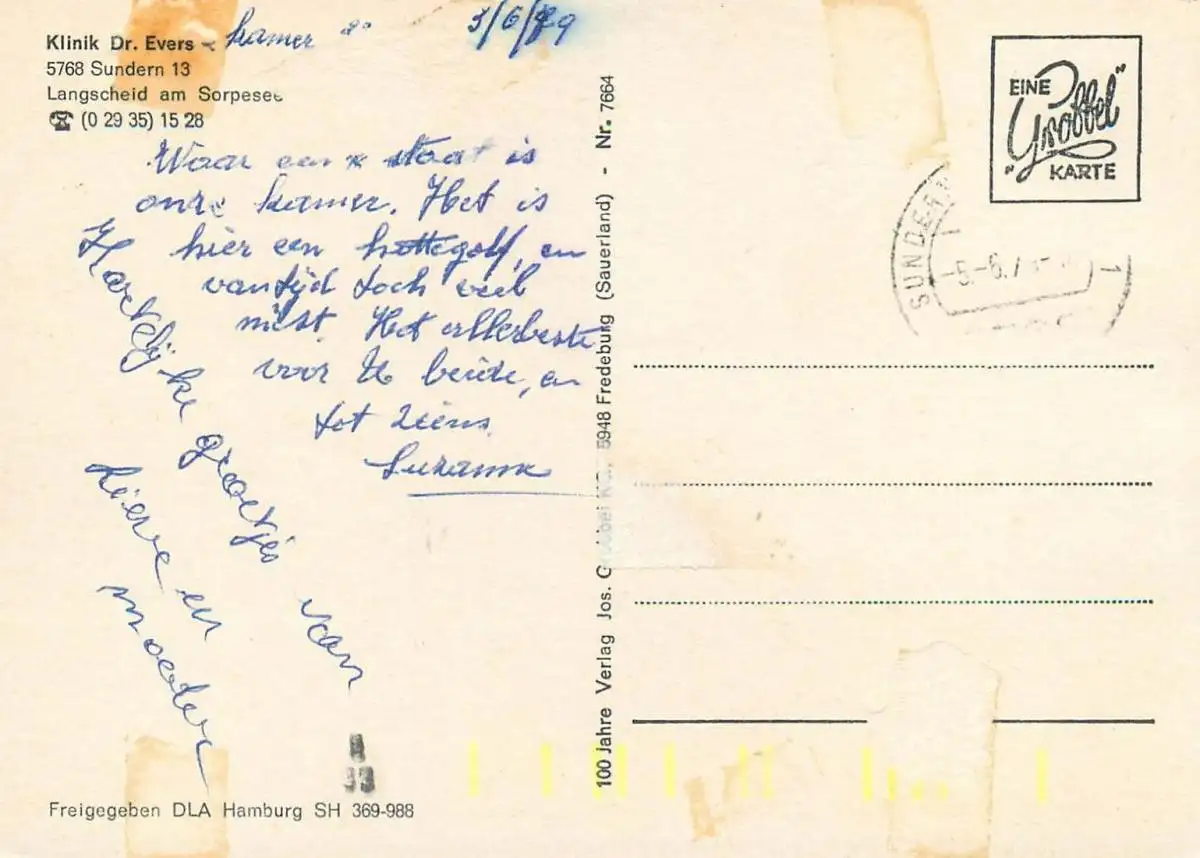 Klinik Dr. Evers
kamer
3/6/79
5768 Sundern 13
Langscheid am Sorpesee
☎ (0 29 35) 15 28
Waar een x staat is
onze kamer. Het is
hier een hittegolf, en
vantijd toch veel
mist. Het allerbeste
voor U beide, en
tot ziens.
Suzanne
Hartelijke groetjes van
Lieve en
moeder
Freigegeben DLA Hamburg SH 369-988
100 Jahre Verlag Jos. Grobbel KG., 5948 Fredeburg (Sauerland) - Nr. 7664
EINE
"Grobbel"
KARTE
SUNDERN
-5.-6.7
1